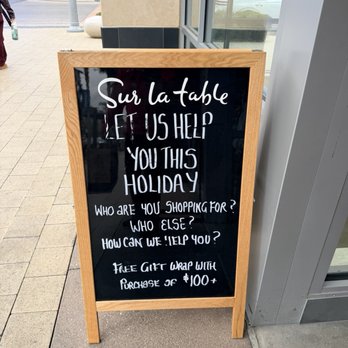 Sur la table
LET US HELP
YOU THIS
HOLIDAY
WHO ARE YOU SHOPPING FOR?
WHO ELSE?
HOW CAN WE HELP YOU?
FREE GIFT WRAP WITH
PURCHASE OF $100+